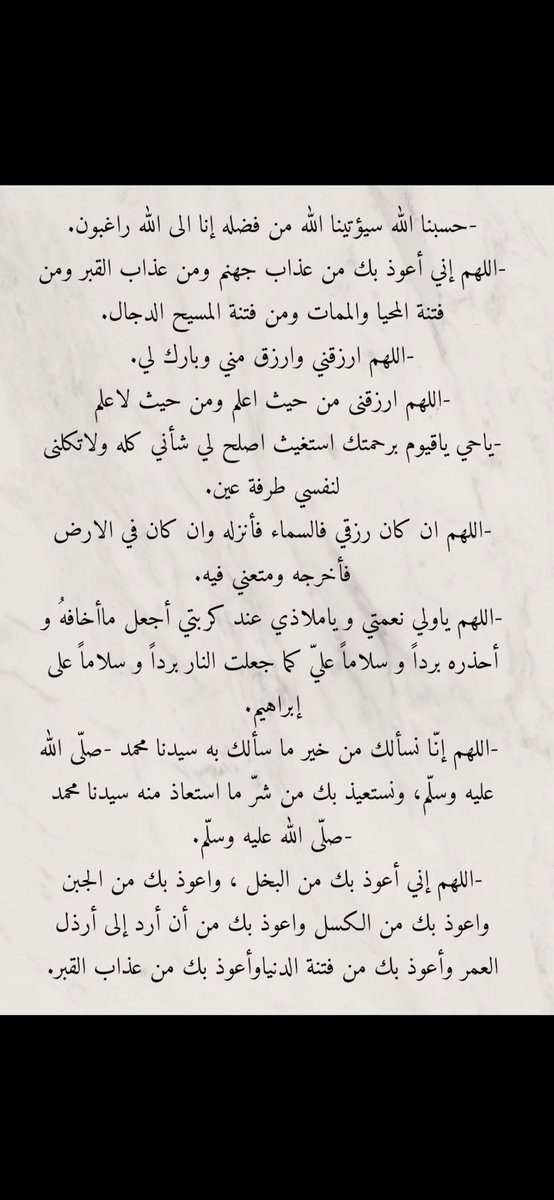 -حسبنا الله سيؤتينا الله من فضله إنا الى الله راغبون.
-اللهم إني أعوذ بك من عذاب جهنم ومن عذاب القبر ومن
فتنة المحيا والممات ومن فتنة المسيح الدجال.
-اللهم ارزقني وارزق مني وبارك لي.
-اللهم ارزقنى من حيث اعلم ومن حيث لاعلم
-ياحي ياقيوم برحمتك استغيث اصلح لي شأني كله ولاتكلنى
لنفسي طرفة عين.
-اللهم ان كان رزقي فالسماء فأنزله وان كان في الارض
فأخرجه ومتعني فيه.
-اللهم ياولي نعمتي و ياملاذي عند كربتي أجعل ماأخافهُ و
أحذره برداً و سلاماً عليّ كما جعلت النار برداً و سلاماً على
إبراهيم.
-اللهم إنّا نسألك من خير ما سألك به سيدنا محمد -صلّى الله
عليه وسلّم، ونستعيذ بك من شرّ ما استعاذ منه سيدنا محمد
-صلّى الله عليه وسلّم.
-اللهم إني أعوذ بك من البخل ، واعوذ بك من الجبن
واعوذ بك من الكسل واعوذ بك من أن أرد إلى أرذل
العمر وأعوذ بك من فتنة الدنياوأعوذ بك من عذاب القبر.